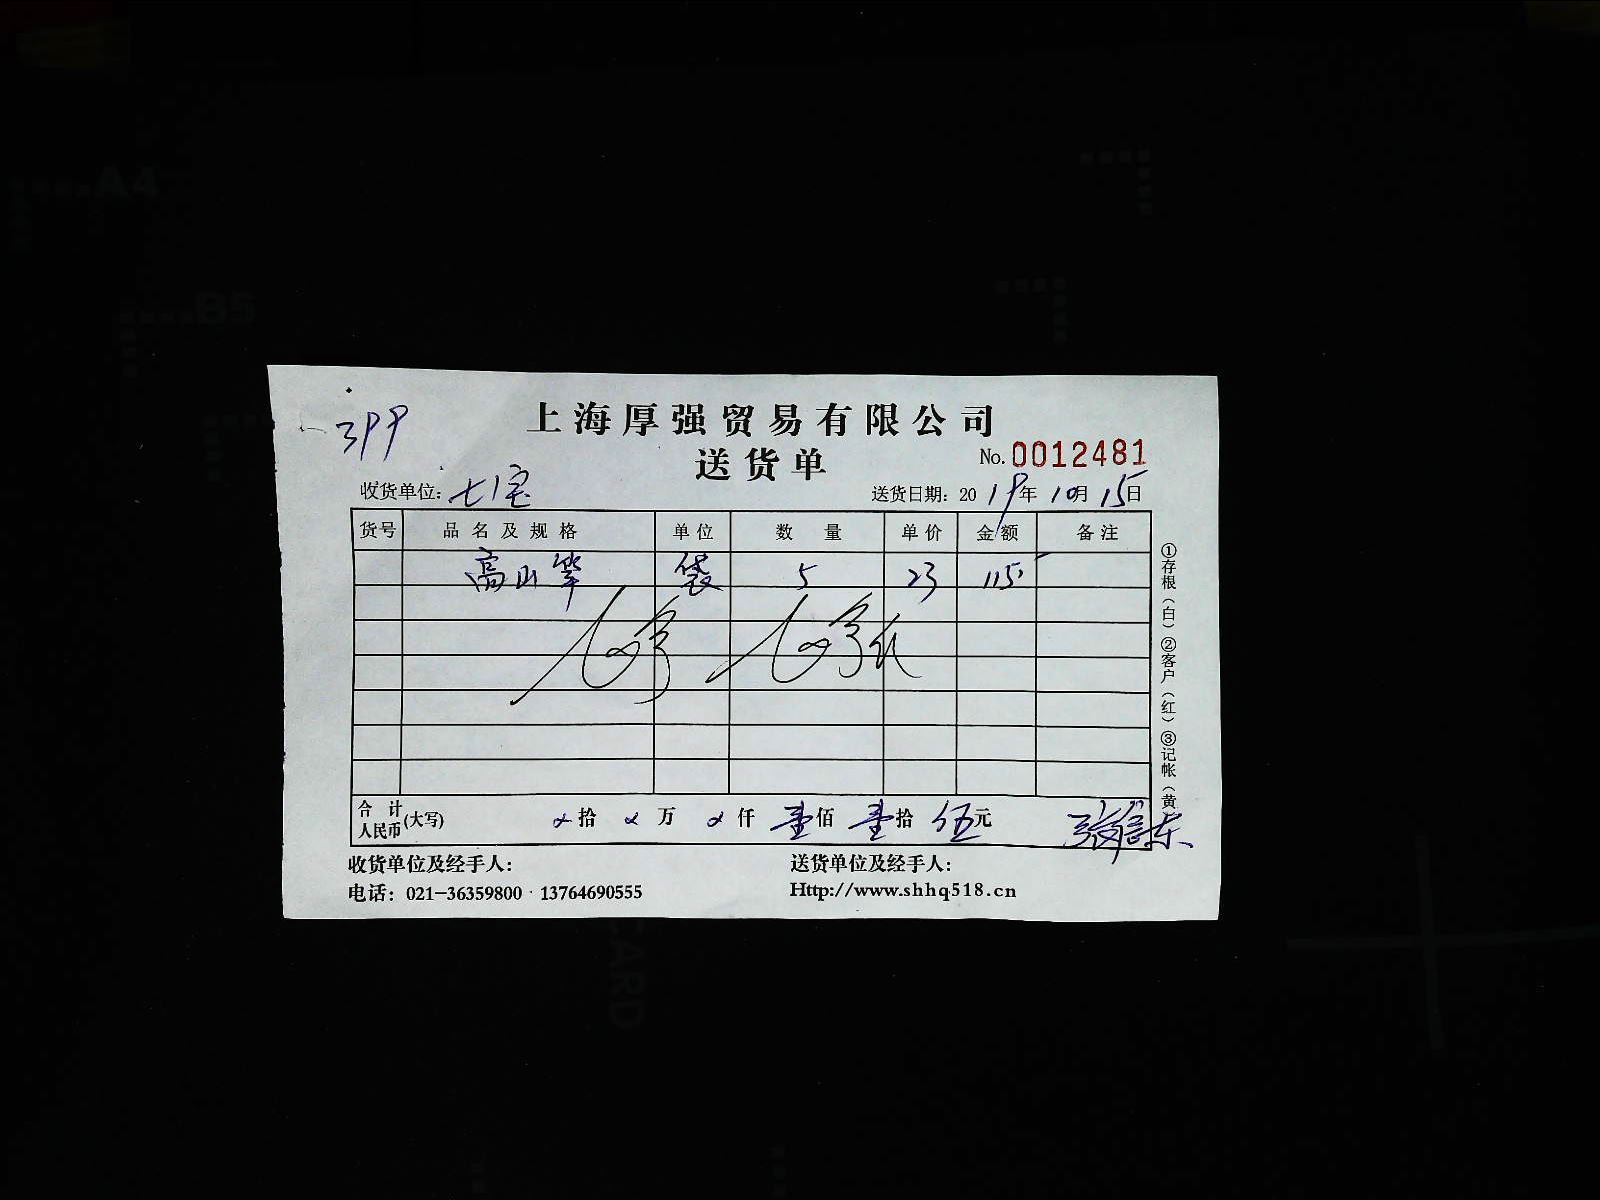 399
上海厚强贸易有限公司
送货单
No. 0012481
收货单位: 七宝
送货日期: 2019年10月15日
货号 品名及规格 单位 数量 单价 金额 备注
高山笋 袋 5 23 115
合计人民币(大写) 拾 万 仟 壹佰 壹拾 伍元
收货单位及经手人:
送货单位及经手人:
电话: 021-36359800 · 13764690555
Http://www.shhq518.cn
①存根(白)②客户(红)③记帐(黄
A4
B5
CARD